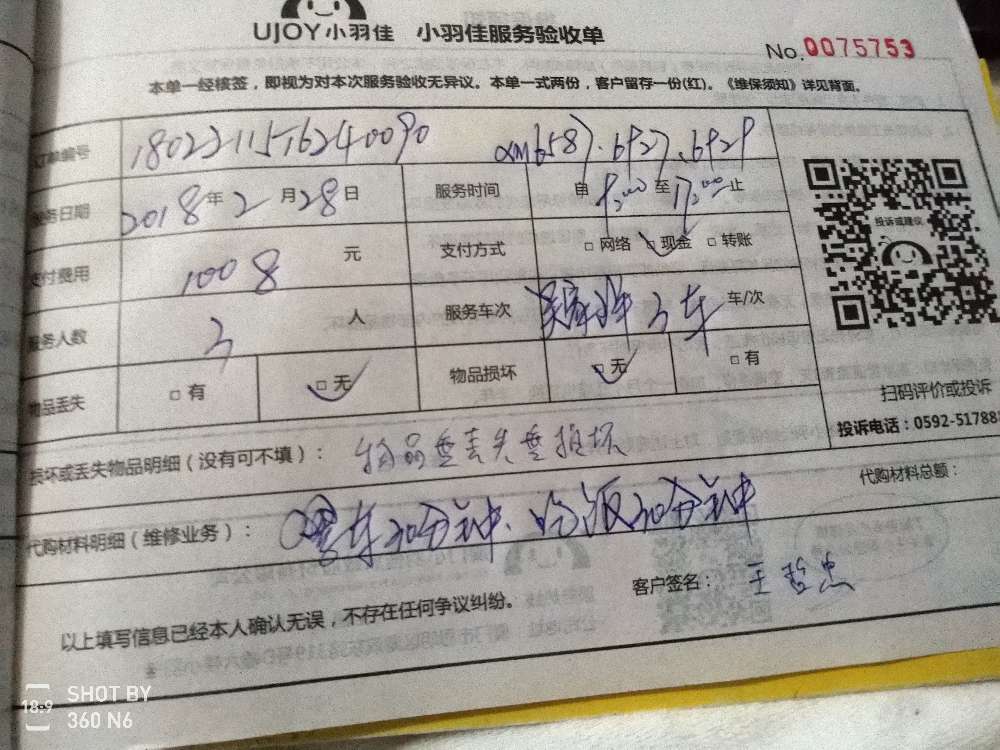 UJOY小羽佳 小羽佳服务验收单
No.0075753
本单一经核签，即视为对本次服务验收无异议。本单一式两份，客户留存一份(红)。《维保须知》详见背面。
订单编号 1802211516240090
服务日期 2018年2月28日 服务时间 自 9:00 至 17:00 止
支付费用 1008 元 支付方式 □网络 □现金 □转账
服务人数 3 人 服务车次 3车 车/次
物品丢失 □有 □无 物品损坏 □无 □有
投诉或建议
扫码评价或投诉
投诉电话：0592-51788
损坏或丢失物品明细（没有可不填）： 物品 丢失 损坏
代购材料明细（维修业务）： 车30分钟、吃饭30分钟
代购材料总额：
以上填写信息已经本人确认无误，不存在任何争议纠纷。
客户签名： 王 忠
SHOT BY
360 N6
18:9